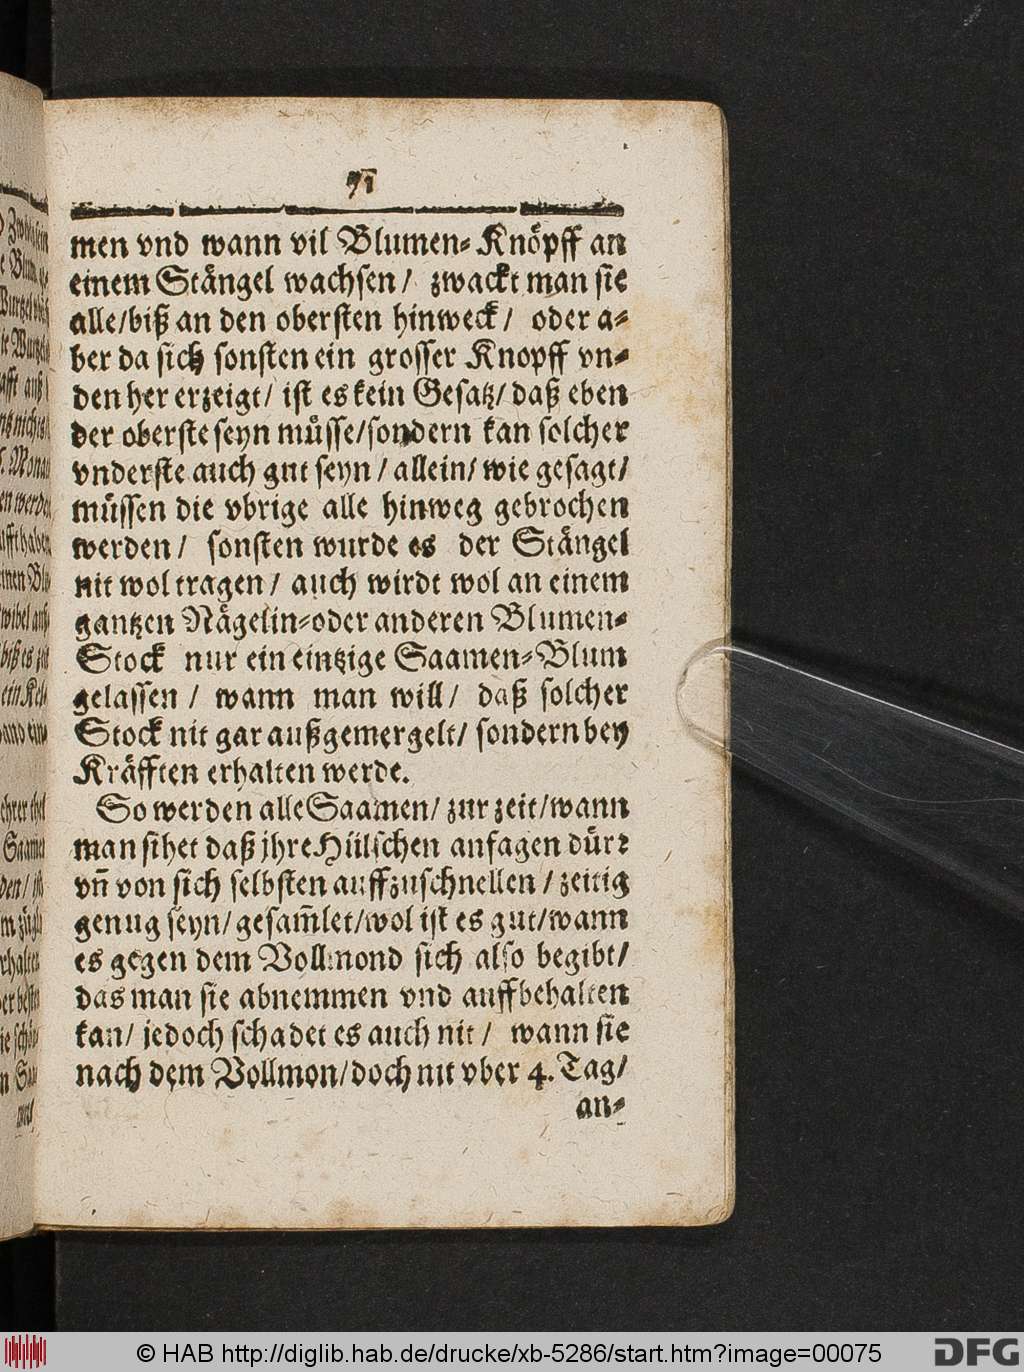 71
men vnd wann vil Blumen-Knöpff an
einem Stängel wachsen/ zwackt man sie
alle/biß an den obersten hinweck/ oder a-
ber da sich sonsten ein grosser Knopff vn-
den her erzeigt/ ist es kein Gesatz/ daß eben
der oberste seyn müsse/sondern kan solcher
vnderste auch gut seyn/ allein/ wie gesagt/
müssen die vbrige alle hinweg gebrochen
werden/ sonsten wurde es der Stängel
nit wol tragen/ auch wirdt wol an einem
gantzen Nägelin-oder anderen Blumen-
Stock nur ein eintzige Saamen-Blum
gelassen/ wann man will/ daß solcher
Stock nit gar außgemergelt/ sondern bey
Kräfften erhalten werde.
So werden alle Saamen/ zur zeit/wann
man sihet daß jhre Hülschen anfagen dürr
vñ von sich selbsten auffzuschnellen/ zeitig
genug seyn/ gesam̃let/wol ist es gut/wann
es gegen dem Vollmond sich also begibt/
das man sie abnemmen vnd auffbehalten
kan/ jedoch schadet es auch nit/ wann sie
nach dem Vollmon/doch nit vber 4. Tag/
an-
© HAB http://diglib.hab.de/drucke/xb-5286/start.htm?image=00075
DFG